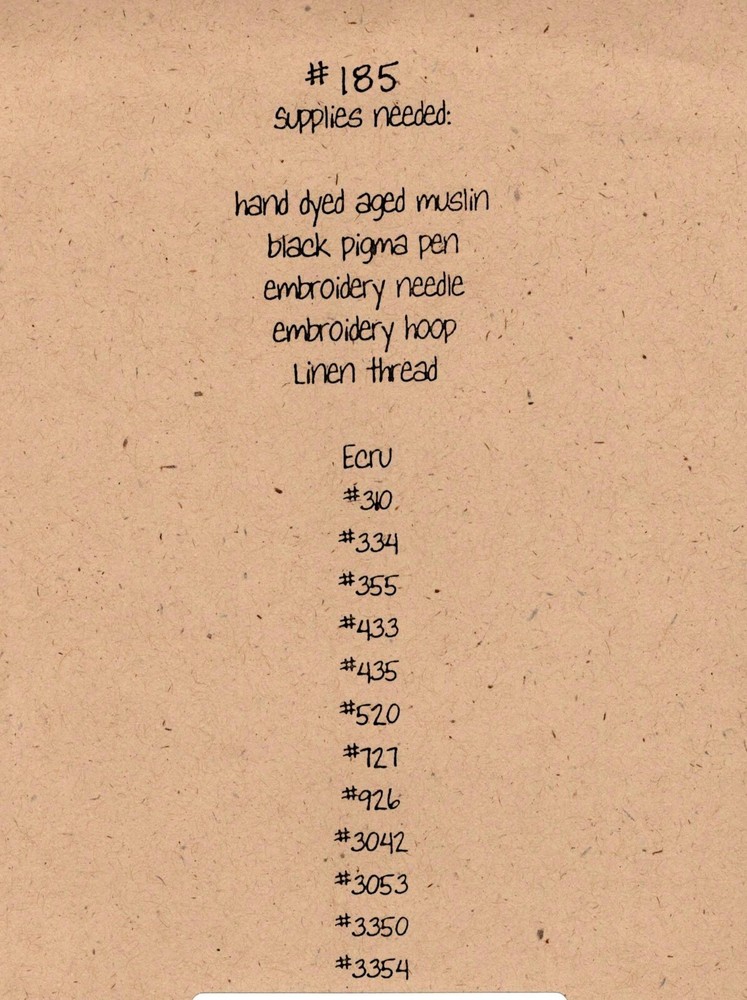 #185
supplies needed:
hand dyed aged muslin
black pigma pen
embroidery needle
embroidery hoop
Linen thread
Ecru
#310
#334
#355
#433
#435
#520
#727
#926
#3042
#3053
#3350
#3354